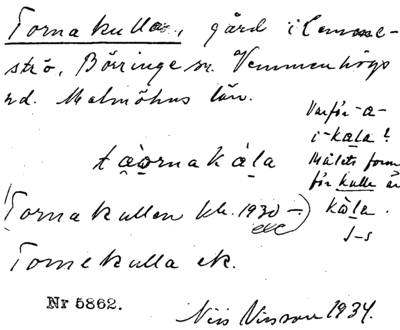 Tornakullas, gård i Lemme-
strö, Börringe sn. Vemmenhögs
hd. Malmöhus län.
Varför -a-
i -kala?
Målets form
för kulle är
kåla.
J-s
tåornakåla
(Tornakullen kb. 1930 —)
etc
Tornekulla ek.
Nr 5862.
Nils Nilsson 1934.